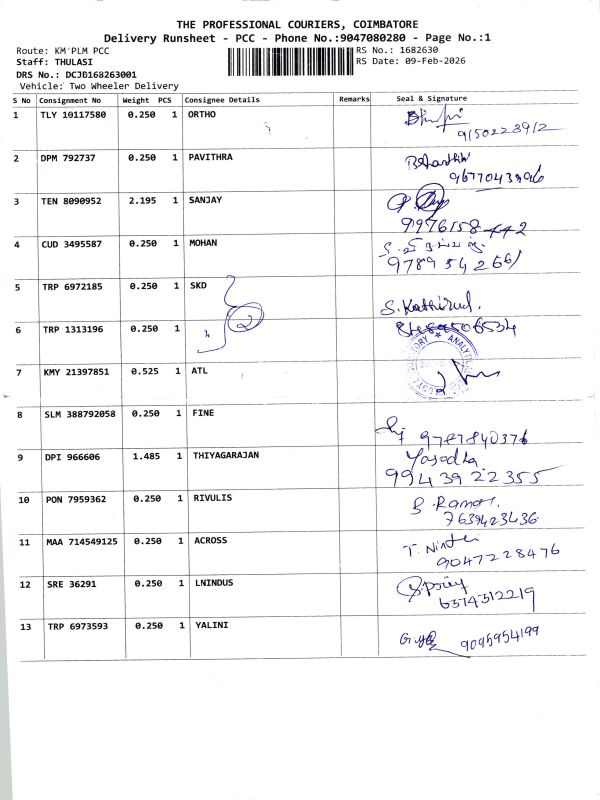 THE PROFESSIONAL COURIERS, COIMBATORE
Delivery Runsheet - PCC - Phone No.:9047080280 - Page No.:1
Route: KM PLM PCC RS No.: 1682630
Staff: THULASI RS Date: 09-Feb-2026
DRS No.: DCJB168263001
Vehicle: Two Wheeler Delivery
S No Consignment No Weight PCS Consignee Details Remarks Seal & Signature
1 TLY 10117580 0.250 1 ORTHO
9150228912
2 DPM 792737 0.250 1 PAVITHRA
9677043996
3 TEN 8090952 2.195 1 SANJAY
9976158442
4 CUD 3495587 0.250 1 MOHAN
9789542661
5 TRP 6972185 0.250 1 SKD
S. Kathirvel.
2
6 TRP 1313196 0.250 1
7 KMY 21397851 0.525 1 ATL
8 SLM 388792058 0.250 1 FINE
9787840376
9 DPI 966606 1.485 1 THIYAGARAJAN Yasodha
9943922355
10 PON 7959362 0.250 1 RIVULIS
7639423436
11 MAA 714549125 0.250 1 ACROSS
9047228476
12 SRE 36291 0.250 1 LNINDUS
6374312219
13 TRP 6973593 0.250 1 YALINI
9095954199